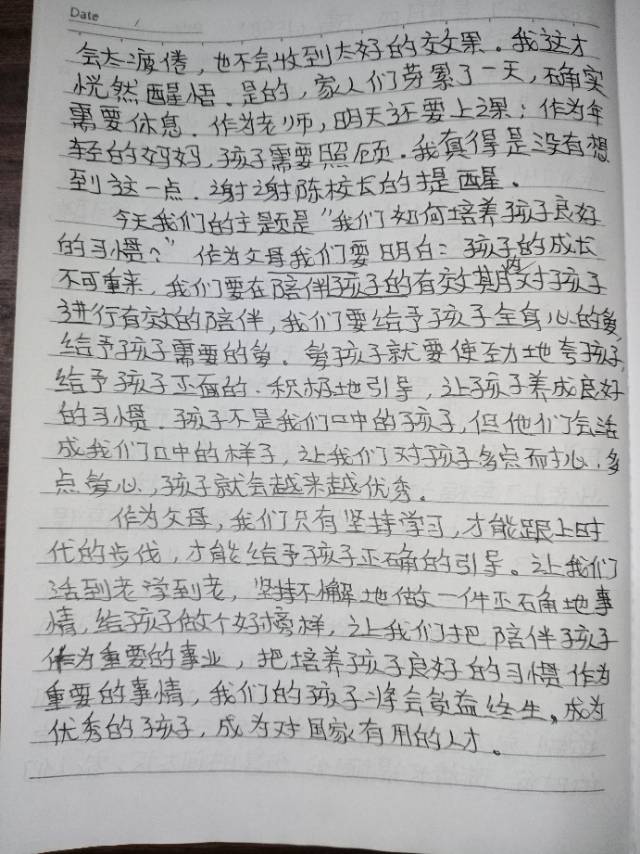 Date
会太疲倦，也不会收到太好的交效果。我这才
恍然醒悟．是的，家人们劳累了一天，确实
需要休息．作为老师，明天还要上课；作为年
轻的妈妈，孩子需要照顾．我真得是没有想
到这一点．谢谢陈校长的提醒。
今天我们的主题是"我们如何培养孩子良好
的习惯？"作为父母我们要明白：孩子的成长
不可重来，我们要在陪伴孩子的有效期内对孩子
进行有效的陪伴，我们要给予孩子全身心的爱，
给予孩子需要的爱．爱孩子就要使劲地夸孩子，
给予孩子正面的．积极地引导，让孩子养成良好
的习惯．孩子不是我们口中的孩子，但他们会活
成我们口中的样子，让我们对孩子多点耐心，多
点爱心，孩子就会越来越优秀。
作为父母，我们只有坚持学习，才能跟上时
代的步伐，才能给予孩子正确的引导。让我们
活到老学到老，坚持不懈地做一件正确地事
情，给孩子做个好榜样，让我们把陪伴孩子
作为重要的事业，把培养孩子良好的习惯作为
重要的事情，我们的孩子将会受益终生。成为
优秀的孩子，成为对国家有用的人才。